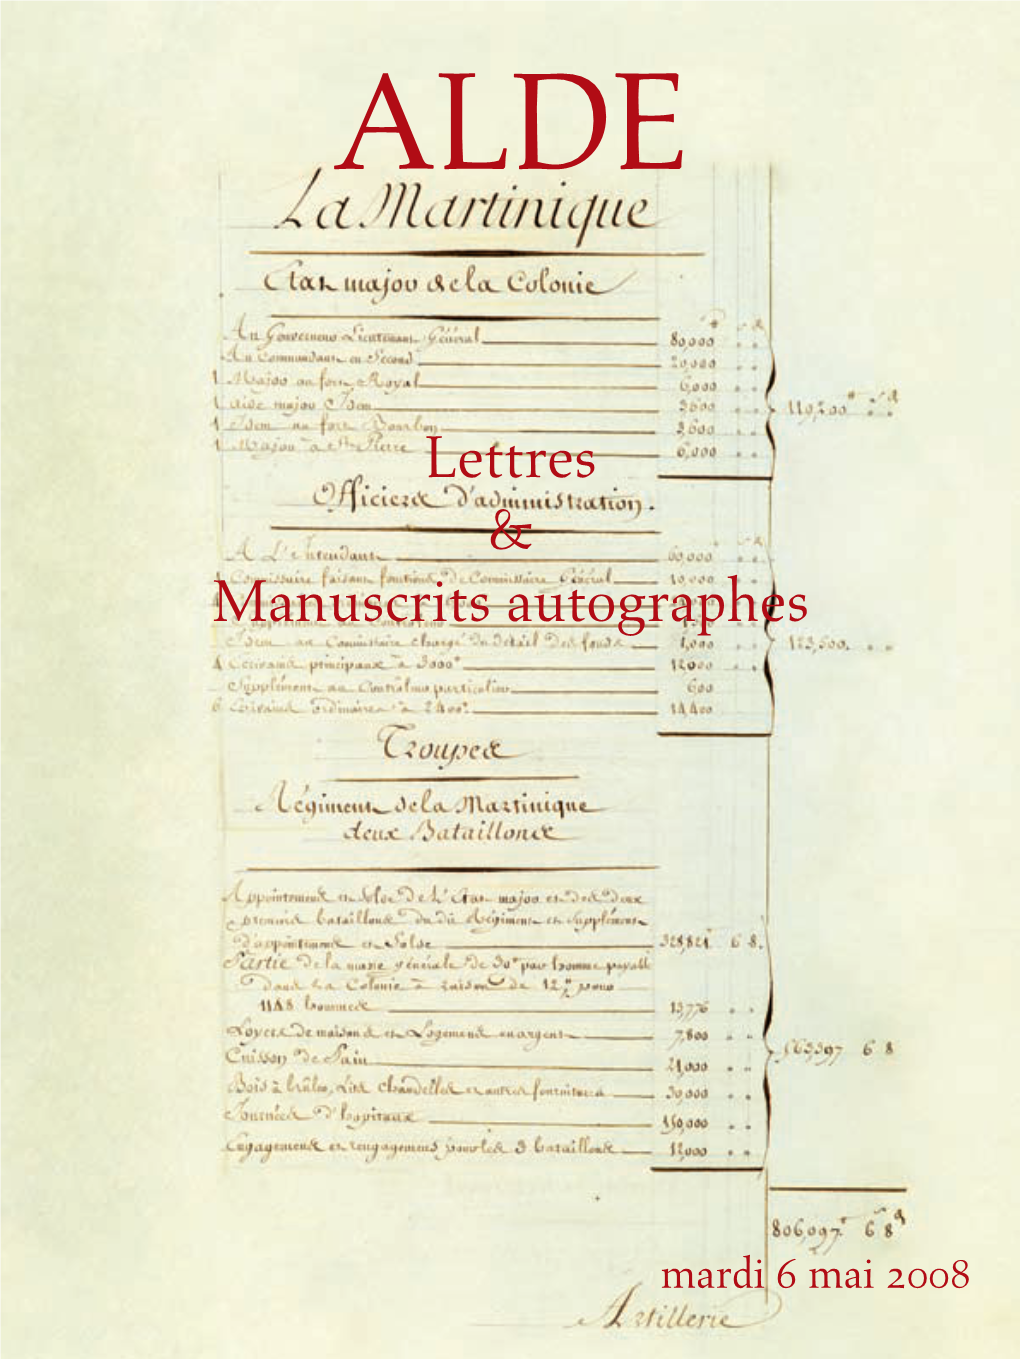 ALDE
La Martinique
Etat major de la Colonie
Au Gouverneur Lieutenant Général 80,000
Au Commandant en Second 20,000
1 Major au fort Royal 6,000
1 aide major Idem 3600
1 Idem au fort Bourbon 3,600 119,200
1 Major à St Pierre 6,000
Lettres
Officiers d'administration.
&
A L'Intendant 60,000
Commissaire faisant fonctions de Commissaire Général 10,000
Manuscrits autographes
Idem au Commissaire chargé du détail des fonds 1,000 123,500.
4 Ecrivains principaux à 3000# 12000
Supplément au Controleur particulier 600
6 Ecrivains ordinaires à 2400#. 14,400
Troupes
Régiment de la Martinique
deux Bataillons
Appointements et Solde de L'Etat major et des deux
premiers bataillons du dit Régiment et Supplément
d'appointements et Solde 328,821 6 8.
Partie de la masse générale de 30# par homme payable
dans la Colonie à raison de 12# pour
1148 hommes 13,776
Loyers de maisons et Logements en argent 7,800
563,397 6 8
Cuisson de Pain 21,000
Bois à brûler, Lits chandelles et autres fournitures 30,000
Journées d'hopitaux 150,000
Engagements et rengagements pour les 2 bataillons 12,000
806,097# 6s 8d
mardi 6 mai 2008
Artillerie